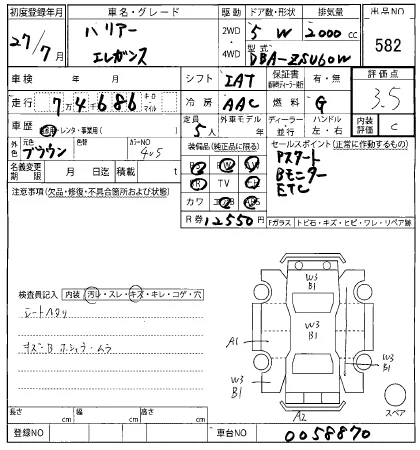 初度登録年月 車名・グレード 駆動 ドア数・形状 排気量 出品NO
27/7月 ハリアー エレガンス 2WD・4WD 5 W 2000cc 582
型式 DBA-ZSU60W
車検 年 月 シフト IAT 保証書 有・無 評価点
走行 7万4686 キロ・マイル 冷房 AAC 燃料 G 3.5
車歴 レンタ・事業用( ) 定員 5人 外車モデル 年 ディーラー 並行 ハンドル 左・右 内装評価 C
外色 元色 ブラウン 色替 カラーNO 4V5 装備品(純正品に限る) セールスポイント(正常に作動するもの)
名義変更期限 月 日迄 積載 t
Pスタート
Bモニター
ETC
TV
カワ
注意事項(欠品・修復・不具合箇所および状態)
R券 12550円
Fガラス トビ石・キズ・ヒビ・ワレ・リペア跡
検査員記入 内装 汚レ・スレ・キズ・キレ・コゲ・穴
シートヘタリ
キズ・B ホシュウ・ムラ
W3 B1
W3 B1
A1
W3 B1
W3 B1
A2
スペア
長さ cm 幅 cm 高さ cm
登録NO 車台NO 0058870